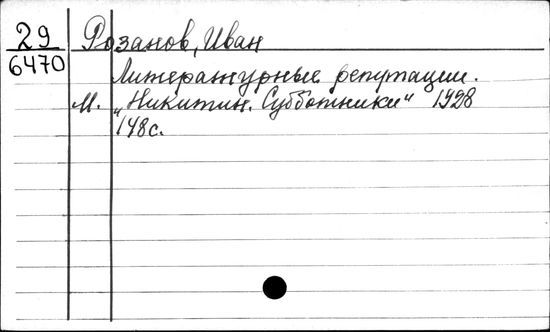 29 Розанов, Иван
6470
Литературные репутации.
М. „Никитин. Субботники“ 1928
148с.